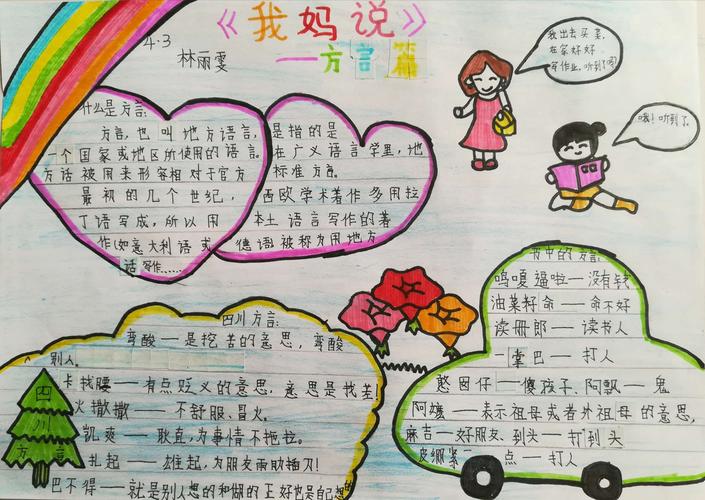 《我妈说》
——方言篇
4·3
林丽雯
什么是方言:
方言,也叫地方语言,是指的是
一个国家或地区所使用的语言。在广义语言学里,地
方话被用来形容相对于官方标准方言。
最初的几个世纪,西欧学术著作多用拉
丁语写成,所以用本土语言写作的著
作(如意大利语或德语被称为用地方
话写作……
我出去买菜,
在家好好
写作业,听到了吗
哦!听到了。
四川方言:
弯酸——是挖苦的意思,弯酸
别人。
卡找腰——有点贬义的意思,意思是找差!
火撒撒——不舒服、冒火。
凯爽——耿直,为事情不拖拉。
扎起——雄起,为朋友两肋插刀!
巴不得——就是别人想的和做的正好也是自己想的
四川方言
书中的方言:
呜嘎逼啦——没有钱
油菜籽命——命不好
读册郎——读书人
一掌巴——打人
憨囡仔——傻孩子、阿飘——鬼
阿嬷——表示祖母或者外祖母的意思,
麻吉——好朋友、到头——打到头
皮绷紧一点——打人
女
女
女